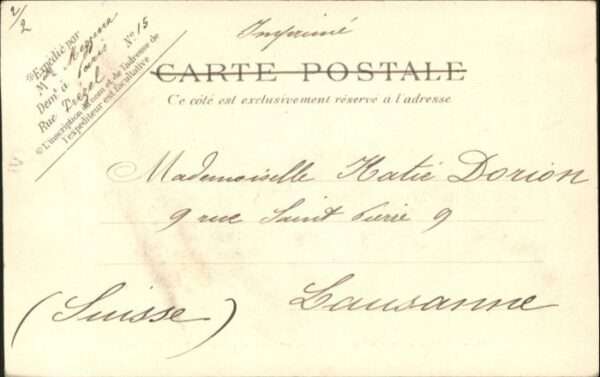 2/2
Expédié par
M
Demt à Paris
Rue Trézel No 15
L'inscription du nom et de l'adresse de
l'expéditeur est facultative
Imprimé
CARTE POSTALE
Ce côté est exclusivement réservé a l'adresse
Mademoiselle Katie Dorion
9 rue Saint Pierre 9
Lausanne
(Suisse)